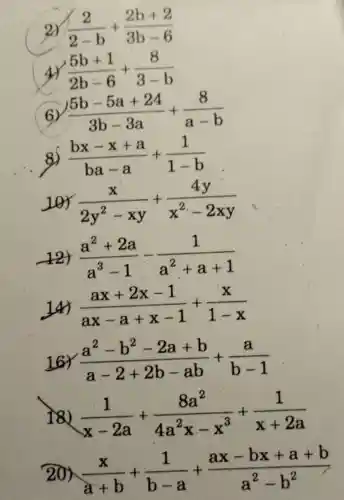 2) \frac{2}{2-b} + \frac{2b+2}{3b-6}
4) \frac{5b+1}{2b-6} + \frac{8}{3-b}
6) \frac{5b-5a+24}{3b-3a} + \frac{8}{a-b}
8) \frac{bx-x+a}{ba-a} + \frac{1}{1-b}
10) \frac{x}{2y^2-xy} + \frac{4y}{x^2-2xy}
12) \frac{a^2+2a}{a^3-1} - \frac{1}{a^2+a+1}
14) \frac{ax+2x-1}{ax-a+x-1} + \frac{x}{1-x}
16) \frac{a^2-b^2-2a+b}{a-2+2b-ab} + \frac{a}{b-1}
18) \frac{1}{x-2a} + \frac{8a^2}{4a^2x-x^3} + \frac{1}{x+2a}
20) \frac{x}{a+b} + \frac{1}{b-a} + \frac{ax-bx+a+b}{a^2-b^2}